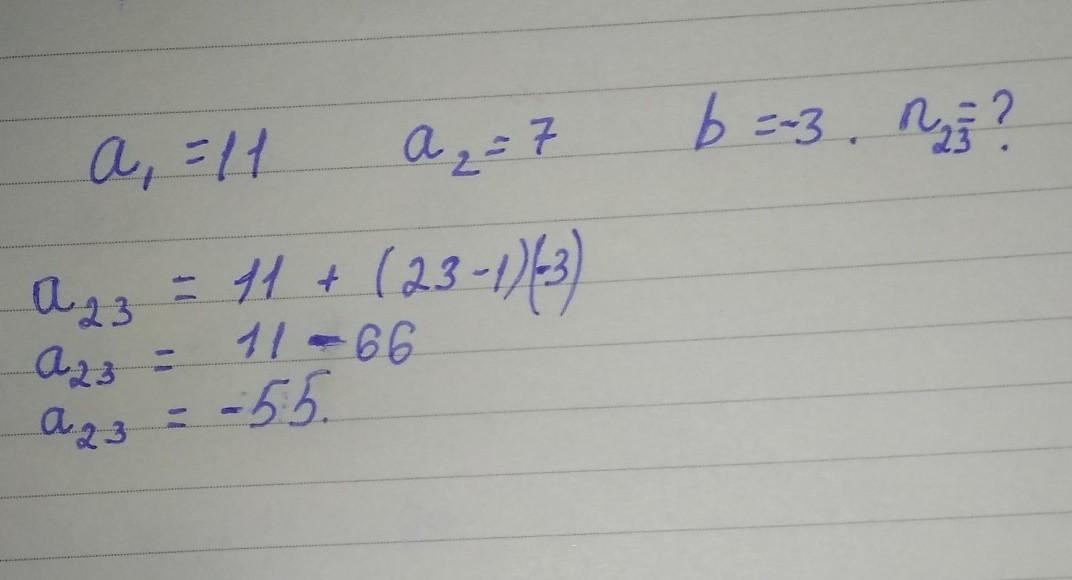 a₁ = 11 a₂ = 7 b = -3. n₂₃ = ?
a₂₃ = 11 + (23-1)(-3)
a₂₃ = 11 - 66
a₂₃ = -55.